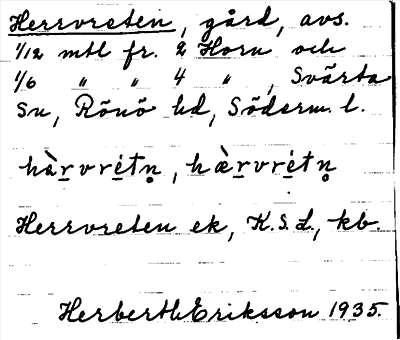 Herrvreten, gård, avs.
1/12 mtl fr. 2 Horn och
1/6 " " 4 " , Svärta
sn, Rönö hd, Söderm. l.
hàr̲vrétn̥, hær̲vrétn̥
Herrvreten ek, K.S.L., kb.
Herbert Eriksson 1935.